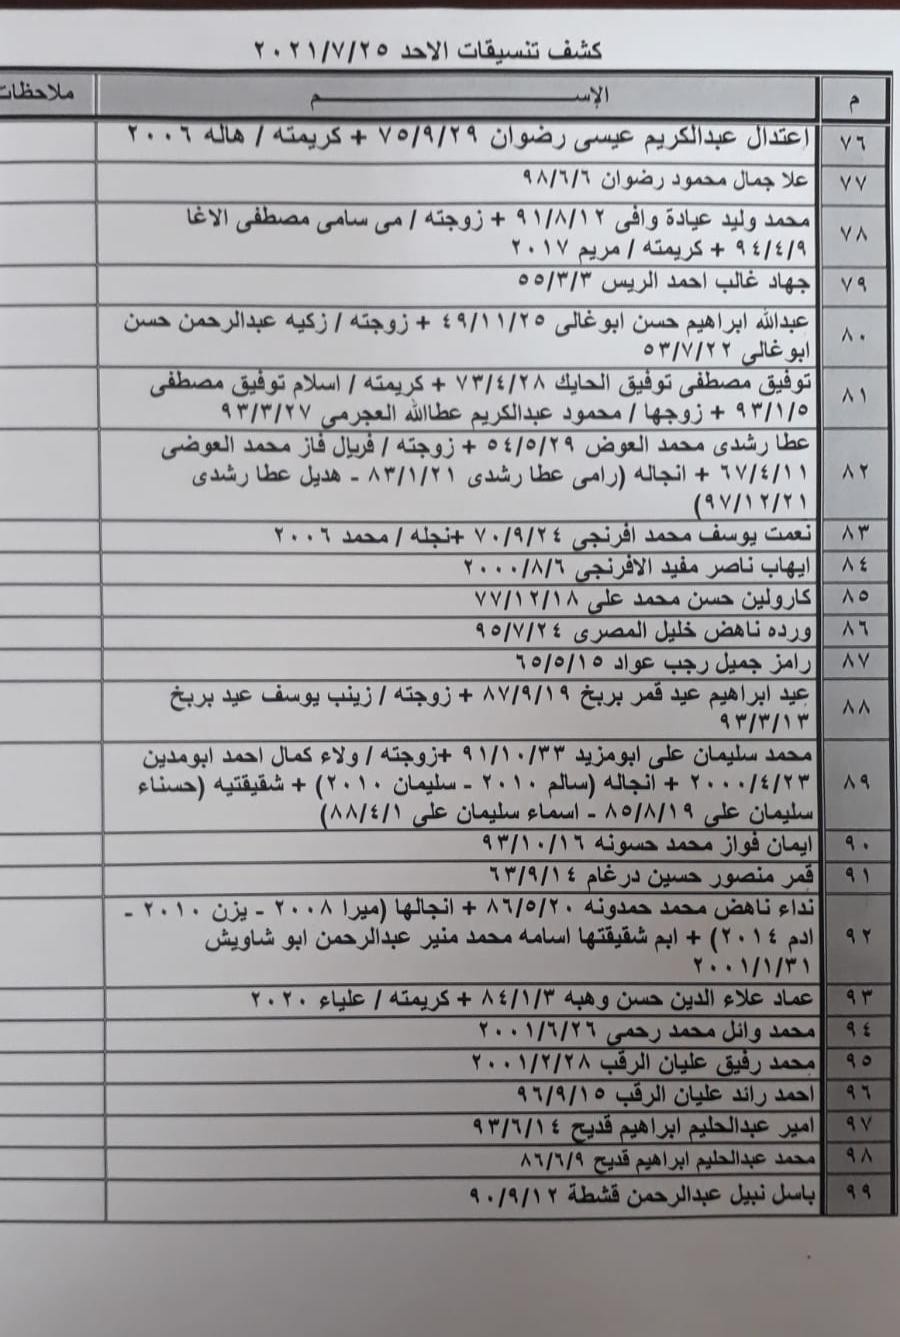 كشف تنسيقات الاحد ٢٠٢١/٧/٢٥
م الإســـــــم ملاحظات
٧٦ اعتدال عبدالكريم عيسى رضوان ٧٥/٩/٢٩ + كريمته / هاله ٢٠٠٦
٧٧ علا جمال محمود رضوان ٩٨/٦/٦
٧٨ محمد وليد عيادة وافى ٩١/٨/١٢ + زوجته / مى سامى مصطفى الاغا
٩٤/٤/٩ + كريمته / مريم ٢٠١٧
٧٩ جهاد غالب احمد الريس ٥٥/٣/٣
٨٠ عبدالله ابراهيم حسن ابوغالى ٤٩/١١/٢٥ + زوجته / زكيه عبدالرحمن حسن
ابوغالى ٥٣/٧/٢٢
٨١ توفيق مصطفى توفيق الحايك ٧٣/٤/٢٨ + كريمته / اسلام توفيق مصطفى
٩٣/١/٥ + زوجها / محمود عبدالكريم عطاالله العجرمى ٩٣/٣/٢٧
٨٢ عطا رشدى محمد العوض ٥٤/٥/٢٩ + زوجته / فريال فاز محمد العوضى
٦٧/٤/١١ + انجاله (رامى عطا رشدى ٨٣/١/٢١ - هديل عطا رشدى
٩٧/١٢/٢١)
٨٣ نعمت يوسف محمد افرنجى ٧٠/٩/٢٤ +نجله / محمد ٢٠٠٦
٨٤ ايهاب ناصر مفيد الافرنجى ٢٠٠٠/٨/٦
٨٥ كارولين حسن محمد على ٧٧/١٢/١٨
٨٦ ورده ناهض خليل المصرى ٩٥/٧/٢٤
٨٧ رامز جميل رجب عواد ٦٥/٥/١٥
٨٨ عيد ابراهيم عيد قمر بربخ ٨٧/٩/١٩ + زوجته / زينب يوسف عيد بربخ
٩٣/٣/١٣
٨٩ محمد سليمان على ابومزيد ٩١/١٠/٣٣ +زوجته / ولاء كمال احمد ابومدين
٢٠٠٠/٤/٢٣ + انجاله (سالم ٢٠١٠ - سليمان ٢٠١٠) + شقيقتيه (حسناء
سليمان على ٨٥/٨/١٩ - اسماء سليمان على ٨٨/٤/١)
٩٠ ايمان فواز محمد حسونه ٩٣/١٠/١٦
٩١ قمر منصور حسين درغام ٦٣/٩/١٤
٩٢ نداء ناهض محمد حمدونه ٨٦/٥/٢٠ + انجالها (ميرا ٢٠٠٨ - يزن ٢٠١٠ -
ادم ٢٠١٤) + ابم شقيقتها اسامه محمد منير عبدالرحمن ابو شاويش
٢٠٠١/١/٣١
٩٣ عماد علاء الدين حسن وهبه ٨٤/١/٣ + كريمته / علياء ٢٠٢٠
٩٤ محمد وائل محمد رحمى ٢٠٠١/٦/٢٦
٩٥ محمد رفيق عليان الرقب ٢٠٠١/٢/٢٨
٩٦ احمد رائد عليان الرقب ٩٦/٩/١٥
٩٧ امير عبدالحليم ابراهيم قديح ٩٣/٦/١٤
٩٨ محمد عبدالحليم ابراهيم قديح ٨٦/٦/٩
٩٩ باسل نبيل عبدالرحمن قشطة ٩٠/٩/١٢